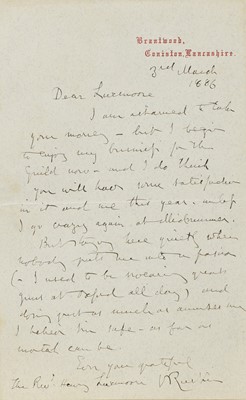 Brantwood,
Coniston, Lancashire.
3rd March
1886
Dear Luxmoore
I am ashamed to take
your money – but I begin
to enjoy my business for the
Guild now – and I do think
you will have some satisfaction
in it and me this year. unless
I go crazy again at Midsummer.
But staying here quietly where
nobody puts me into a passion
(– I used to be swearing
just at Oxford all day) and
doing just as much as amuses me
I believe I'm safe – as far as
mortal can be.
Ever your grateful
the Revd. Henry Luxmoore J Ruskin